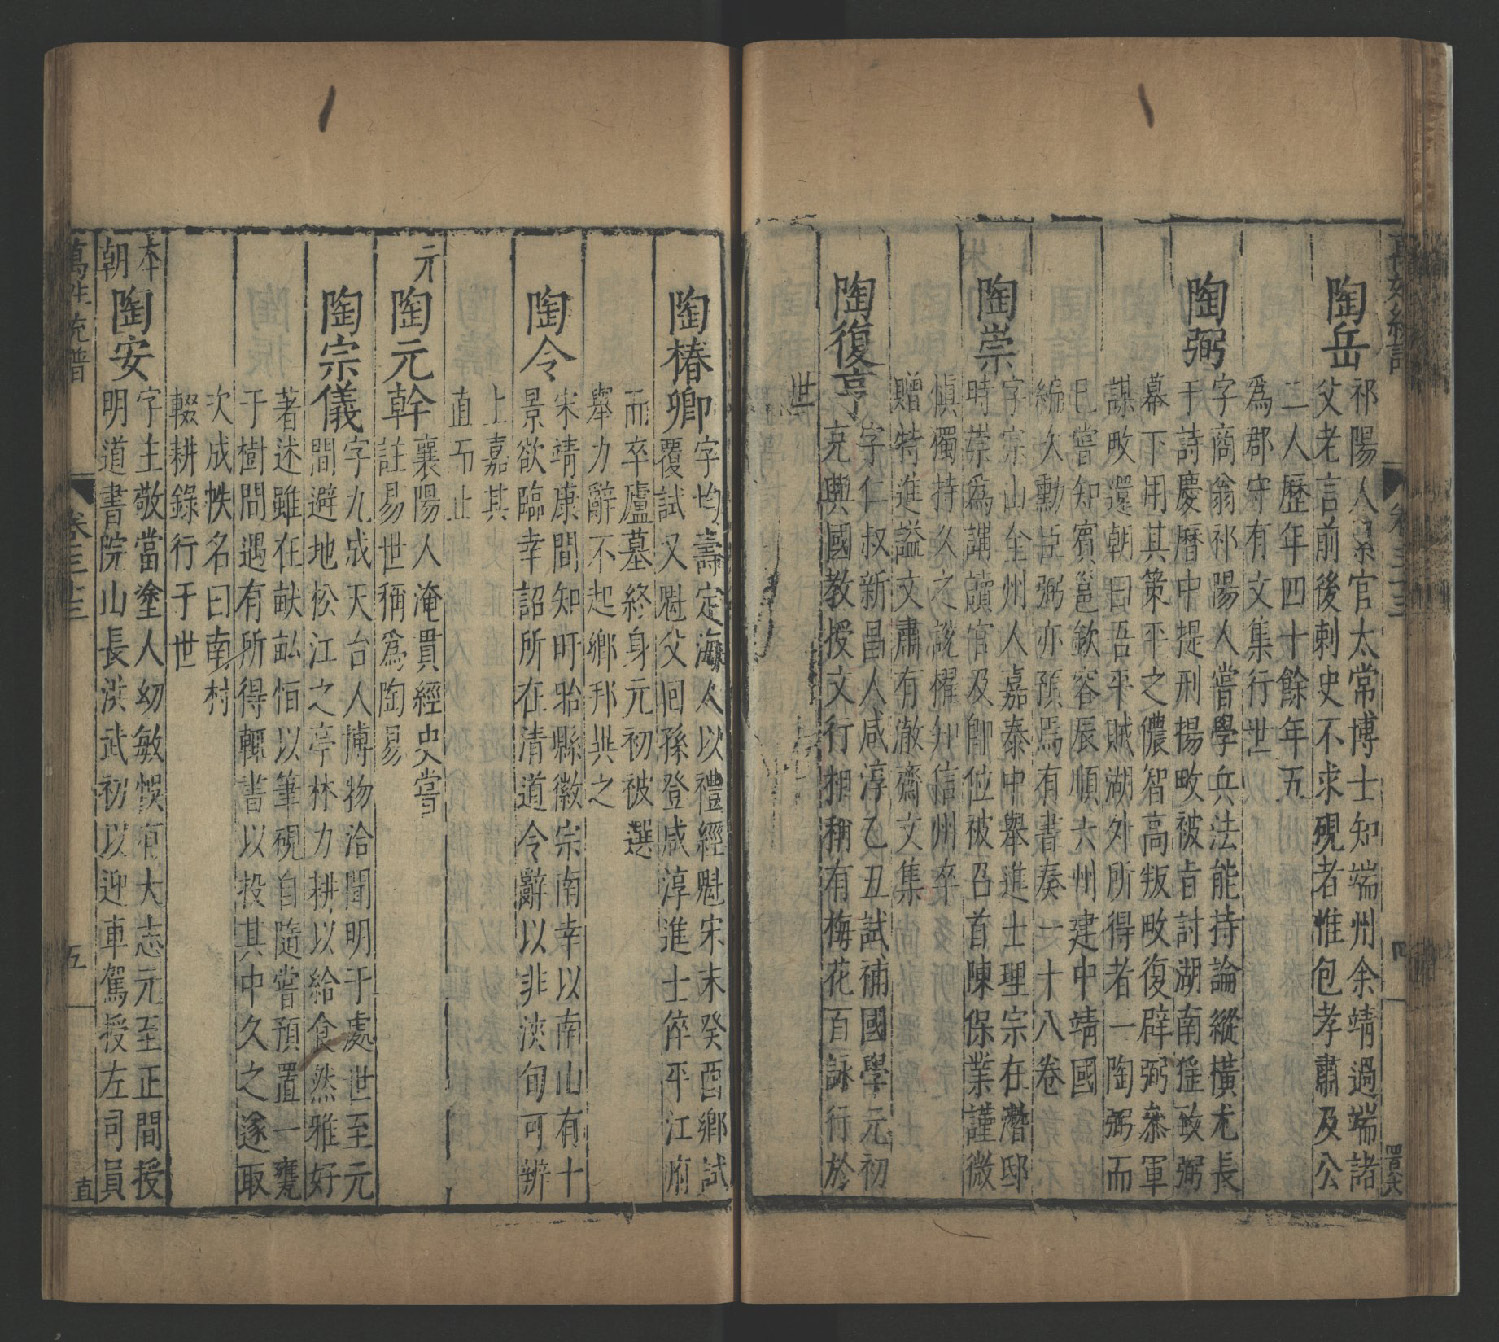 陶岳
祁陽人累官太常博士知端州余靖過端諸
父老言前後刺史不求硯者惟包孝肅及公
二人歷年四十餘年五
爲郡守有文集行世
陶弼
字商翁祁陽人嘗學兵法能持論縱橫尤長
于詩慶曆中提刑揚畋被旨討湖南猺致弼
幕下用其策平之儂智高叛畋復辟弼叅軍
謀畋還朝曰吾平賊湖外所得者一陶弼而
巳嘗知賓邕欽容辰順六州建中靖國
編次勳臣弼亦預焉有書奏一十八卷
陶崇
字宗山全州人嘉泰中舉進士理宗在潛邸
時崇爲講讀官及卽位被召首陳保業謹微
愼獨持久之說擢知信州卒
贈特進謚文肅有澈齋文集
陶復亨
字仁叔新昌人咸淳乙丑試補國學元初
爲興國教授文行相稱有梅花百詠行於
世
陶椿卿
字均壽定海人以禮經魁宋末癸酉鄉試
覆試又魁父囘孫登咸淳進士倅平江府
而卒廬墓終身元初被選
舉力辭不起鄉邦與之
陶令
宋靖康間知盱眙縣徽宗南幸以南山有十
景欲臨幸詔所在清道令辭以非浹旬可辨
上嘉其
直而止
元
陶元幹
襄陽人淹貫經史嘗
註易世稱爲陶易
陶宗儀
字九成天台人博物洽聞明于處世至元
間避地松江之亭林力耕以給食然雅好
著述雖在畎畝恒以筆硯自隨嘗預置一甕
于樹間遇有所得輒書以投其中久之遂取
次成帙名曰南村
輟耕錄行于世
本朝
陶安
字主敬當塗人幼敏悞有大志元至正間授
明道書院山長洪武初以迎車駕授左司員
萬姓統譜
卷三十三
五
直